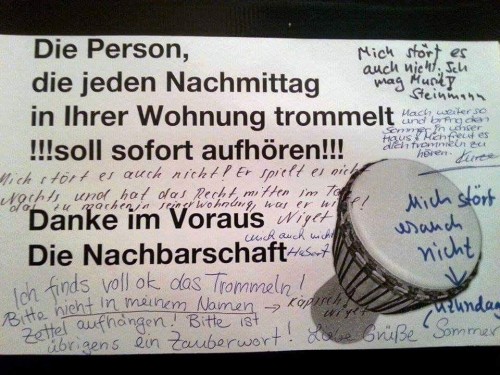 Die Person,
die jeden Nachmittag
in Ihrer Wohnung trommelt
!!!soll sofort aufhören!!!
Danke im Voraus
Die Nachbarschaft
Mich stört es
auch nicht. Ich
mag Musik!
Steinmann
Mach weiter so
und bring den
Sommer in unser
Haus! Mich freut es
dich trommeln zu
hören.
Mich stört es auch nicht! Er spielt es nicht
Nachts, und hat das Recht, mitten im Tag
das zu machen in seiner Wohnung, was er will!
Niget
mich auch nicht
Hubert
Mich stört
es auch
nicht
Ich finds voll ok das Trommeln!
Bitte nicht in meinem Namen → Kapisch,
Niget
Zettel aufhängen! Bitte ist
übrigens ein Zauberwort! Liebe Grüße Sommer